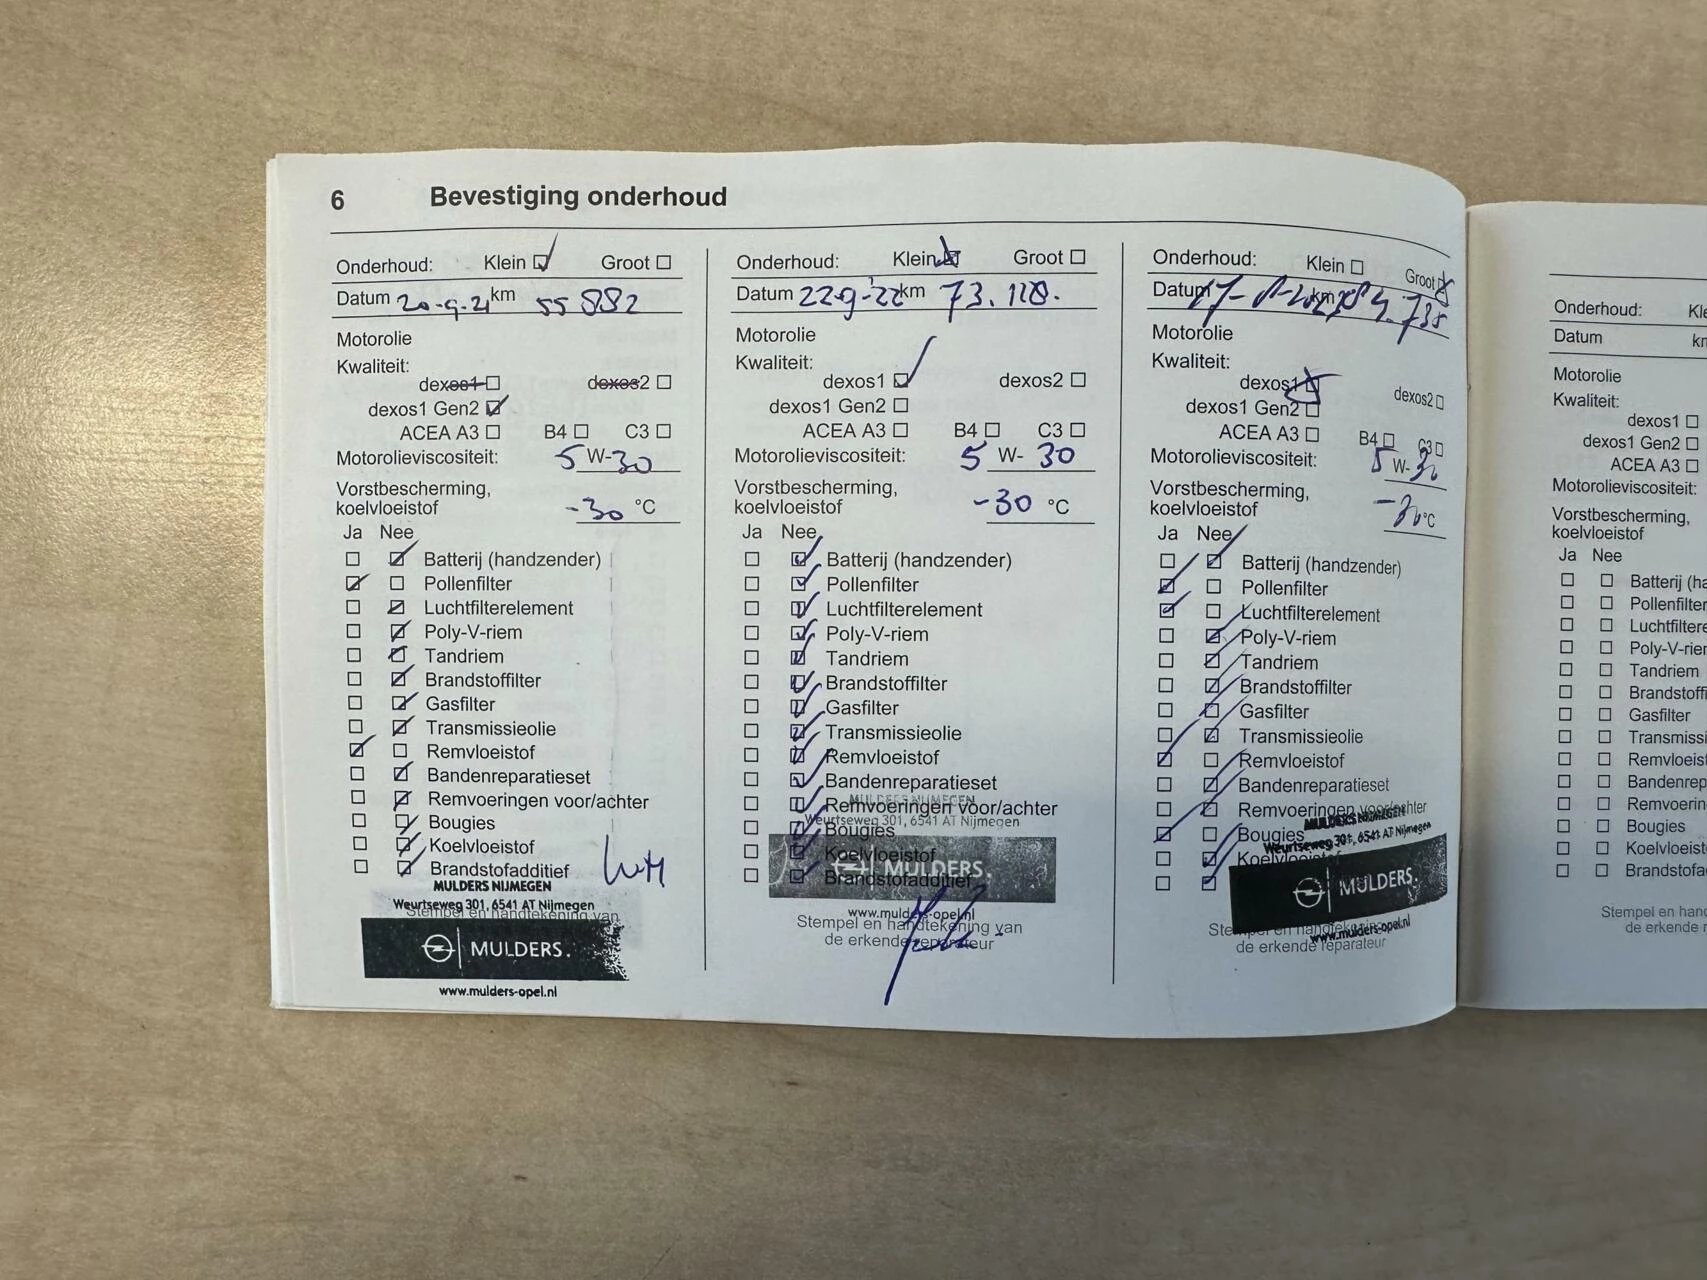 6 Bevestiging onderhoud
Onderhoud: Klein Groot
Datum 20-9-21 km 55 882
Motorolie
Kwaliteit:
dexos1 dexos2
dexos1 Gen2
ACEA A3 B4 C3
Motorolieviscositeit: 5 W-30
Vorstbescherming,
koelvloeistof -30 °C
Ja Nee
Batterij (handzender)
Pollenfilter
Luchtfilterelement
Poly-V-riem
Tandriem
Brandstoffilter
Gasfilter
Transmissieolie
Remvloeistof
Bandenreparatieset
Remvoeringen voor/achter
Bougies
Koelvloeistof
Brandstofadditief
MULDERS NIJMEGEN
Weurtseweg 301, 6541 AT Nijmegen
Stempel en handtekening van
MULDERS.
www.mulders-opel.nl
Onderhoud: Klein Groot
Datum 22-9-'22 km 73.128.
Motorolie
Kwaliteit:
dexos1 dexos2
dexos1 Gen2
ACEA A3 B4 C3
Motorolieviscositeit: 5 W- 30
Vorstbescherming,
koelvloeistof -30 °C
Ja Nee
Batterij (handzender)
Pollenfilter
Luchtfilterelement
Poly-V-riem
Tandriem
Brandstoffilter
Gasfilter
Transmissieolie
Remvloeistof
Bandenreparatieset
MULDERS NIJMEGEN
Remvoeringen voor/achter
Weurtseweg 301, 6541 AT Nijmegen
Bougies
Koelvloeistof
MULDERS.
Brandstofadditief
www.mulders-opel.nl
Stempel en handtekening van
de erkende reparateur
Onderhoud: Klein Groot
Datum km
Motorolie
Kwaliteit:
dexos1 dexos2
dexos1 Gen2
ACEA A3 B4 C3
Motorolieviscositeit: 5 W-30
Vorstbescherming,
koelvloeistof -30 °C
Ja Nee
Batterij (handzender)
Pollenfilter
Luchtfilterelement
Poly-V-riem
Tandriem
Brandstoffilter
Gasfilter
Transmissieolie
Remvloeistof
Bandenreparatieset
Remvoeringen voor/achter
MULDERS NIJMEGEN
Bougies
Weurtseweg 301, 6541 AT Nijmegen
Koelvloeistof
MULDERS.
Stempel en handtekening van
www.mulders-opel.nl
de erkende reparateur
Onderhoud: Kle
Datum km
Motorolie
Kwaliteit:
dexos1
dexos1 Gen2
ACEA A3
Motorolieviscositeit:
Vorstbescherming,
koelvloeistof
Ja Nee
Batterij (ha
Pollenfilter
Luchtfiltere
Poly-V-rier
Tandriem
Brandstoffi
Gasfilter
Transmissi
Remvloeist
Bandenrep
Remvoerin
Bougies
Koelvloeist
Brandstofa
Stempel en hand
de erkende r